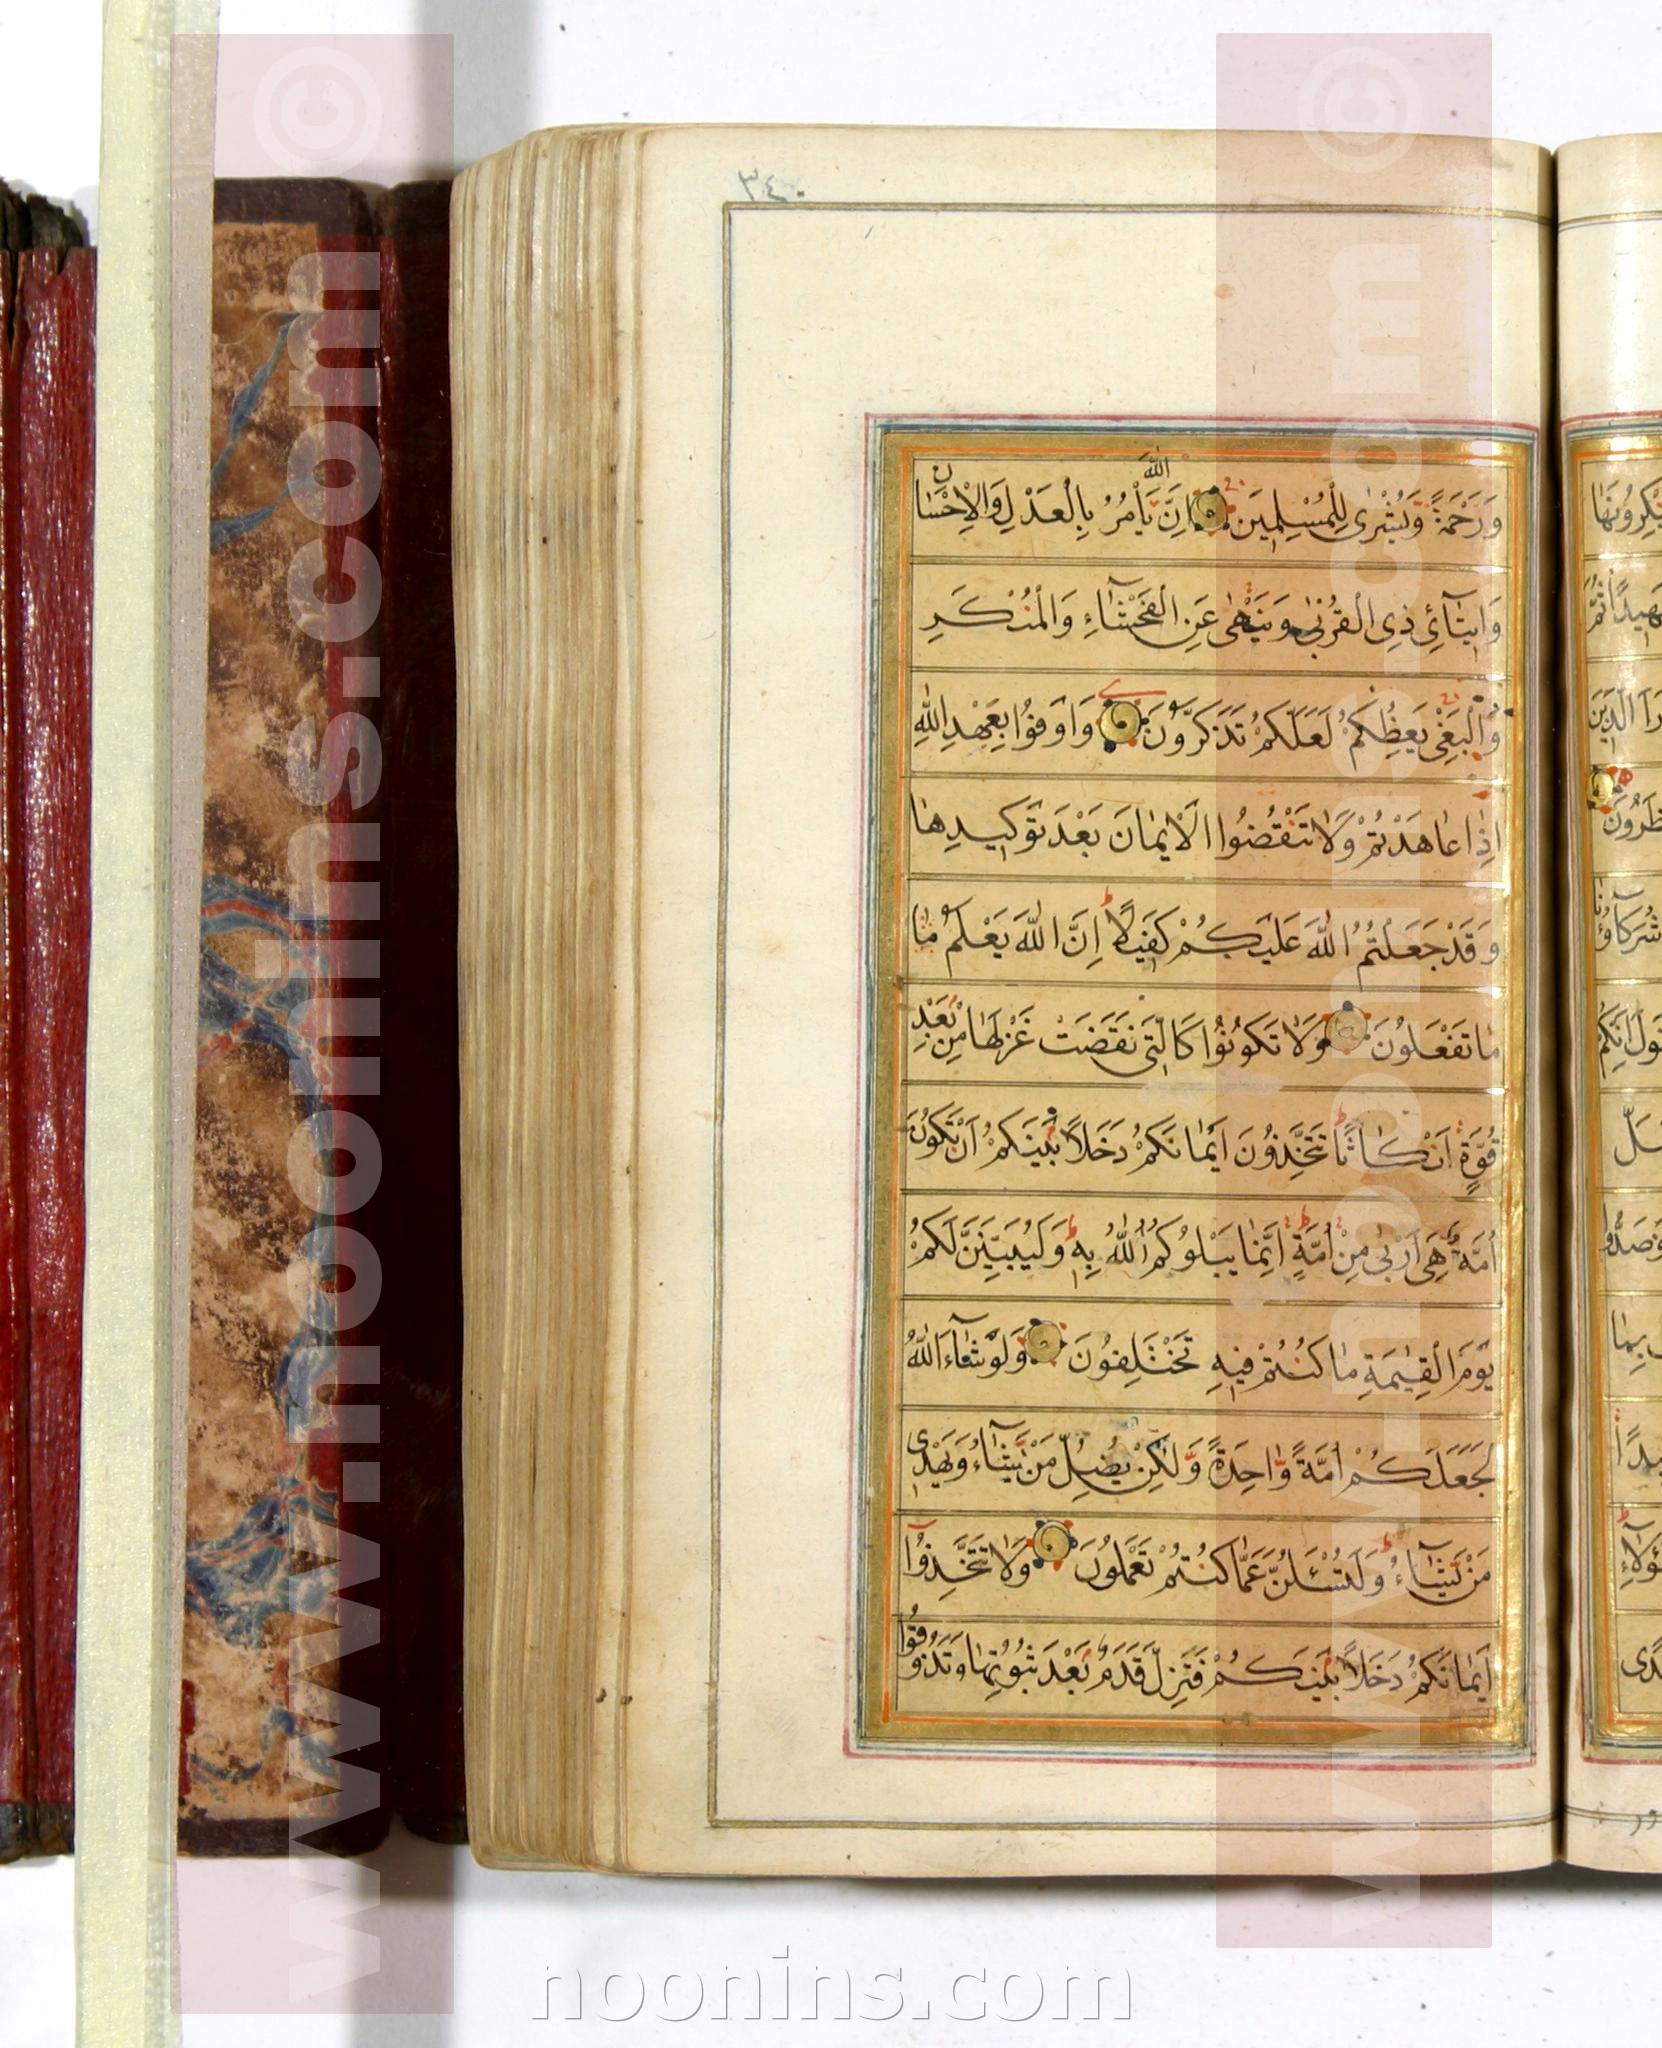 ٣٤٠
وَرَحْمَةً وَبُشْرٰى لِلْمُسْلِمِينَ اِنَّ اللّٰهَ يَأْمُرُ بِالْعَدْلِ وَالْاِحْسَانِ
وَاِيتَآئِ ذِي الْقُرْبٰى وَيَنْهٰى عَنِ الْفَحْشَآءِ وَالْمُنْكَرِ
وَالْبَغْيِ يَعِظُكُمْ لَعَلَّكُمْ تَذَكَّرُونَ وَاَوْفُوا بِعَهْدِ اللّٰهِ
اِذَا عَاهَدْتُمْ وَلَا تَنْقُضُوا الْاَيْمَانَ بَعْدَ تَوْكِيدِهَا
وَقَدْ جَعَلْتُمُ اللّٰهَ عَلَيْكُمْ كَفِيلًا اِنَّ اللّٰهَ يَعْلَمُ مَا
مَا تَفْعَلُونَ وَلَا تَكُونُوا كَالَّتِي نَقَضَتْ غَزْلَهَا مِنْ بَعْدِ
قُوَّةٍ اَنْكَاثًا تَتَّخِذُونَ اَيْمَانَكُمْ دَخَلًا بَيْنَكُمْ اَنْ تَكُونَ
اُمَّةٌ هِيَ اَرْبٰى مِنْ اُمَّةٍ اِنَّمَا يَبْلُوكُمُ اللّٰهُ بِهِ وَلَيُبَيِّنَنَّ لَكُمْ
يَوْمَ الْقِيٰمَةِ مَا كُنْتُمْ فِيهِ تَخْتَلِفُونَ وَلَوْ شَآءَ اللّٰهُ
لَجَعَلَكُمْ اُمَّةً وَاحِدَةً وَلٰكِنْ يُضِلُّ مَنْ يَشَآءُ وَيَهْدِي
مَنْ يَشَآءُ وَلَتُسْئَلُنَّ عَمَّا كُنْتُمْ تَعْمَلُونَ وَلَا تَتَّخِذُوآ
اَيْمَانَكُمْ دَخَلًا بَيْنَكُمْ فَتَزِلَّ قَدَمٌ بَعْدَ ثُبُوتِهَا وَتَذُوقُوا
www.noonins.com ©
www.noonins.com ©
noonins.com